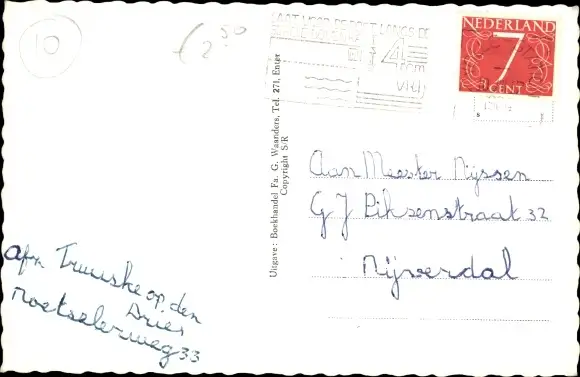 10
€ 2,50
NEDERLAND
7
CENT
Uitgave: Boekhandel Fa. G. Waanders, Tel. 271, Enter
Copyright S/R
Aan Meester Nijssen
G J Piksenstraat 32
Nijverdal
Afz. Truuske op den
Dries
Noetselerweg 33